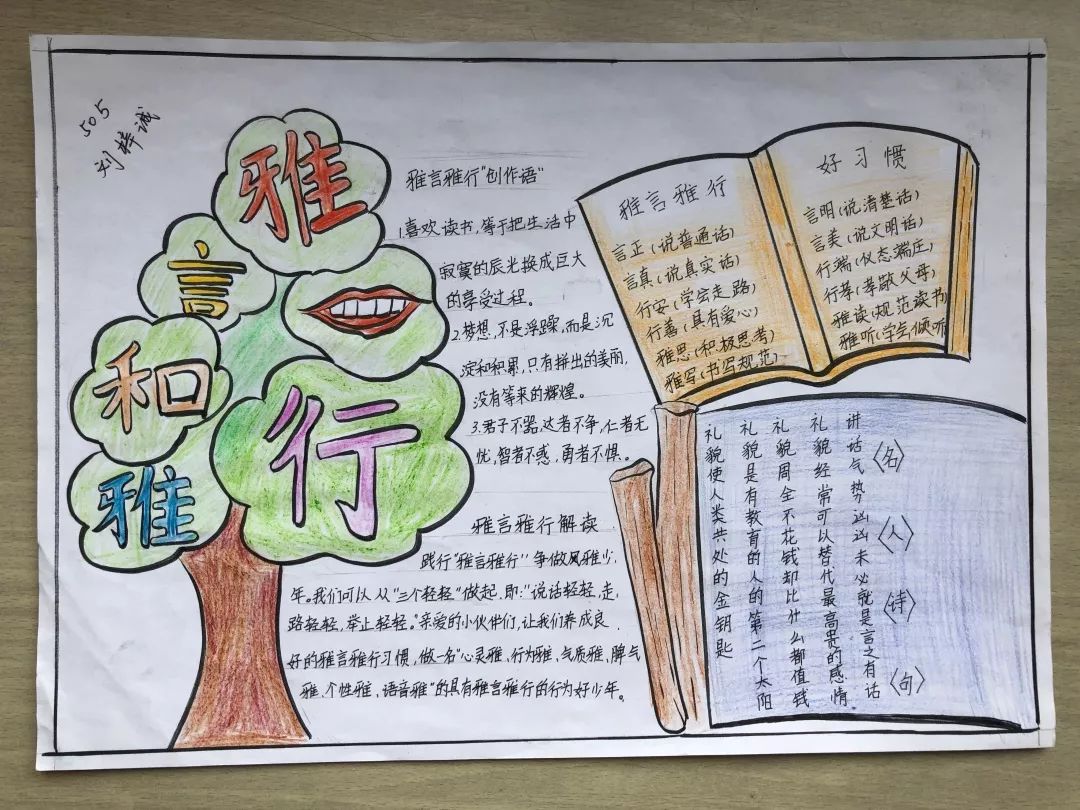 505
刘梓诚
雅
言
和
雅
行
雅言雅行"创作语"
1.喜欢读书,等于把生活中
寂寞的辰光换成巨大
的享受过程。
2.梦想,不是浮躁,而是沉
淀和积累,只有拼出的美丽,
没有等来的辉煌。
3.君子不器,达者不争,仁者无
忧,智者不惑,勇者不惧。
雅言雅行解读
践行"雅言雅行"争做风雅少
年。我们可以从"三个轻轻"做起,即:"说话轻轻,走
路轻轻,举止轻轻。"亲爱的小伙伴们,让我们养成良
好的雅言雅行习惯,做一名"心灵雅、行为雅、气质雅、脾气
雅、个性雅、语音雅"的具有雅言雅行的行为好少年。
雅言雅行
言正(说普通话)
言真(说真实话)
行安(学会走路)
行善(具有爱心)
雅思(积极思考)
雅写(书写规范)
好习惯
言明(说清楚话)
言美(说文明话)
行端(仪态端庄)
行孝(孝敬父母)
雅读(规范读书)
雅听(学会倾听
〈名〉〈人〉〈诗〉〈句〉
讲话气势凶凶未必就是言之有话
礼貌经常可以替代最高贵的感情。
礼貌周全不花钱却比什么都值钱
礼貌是有教育的人的第二个太阳
礼貌使人类共处的金钥匙